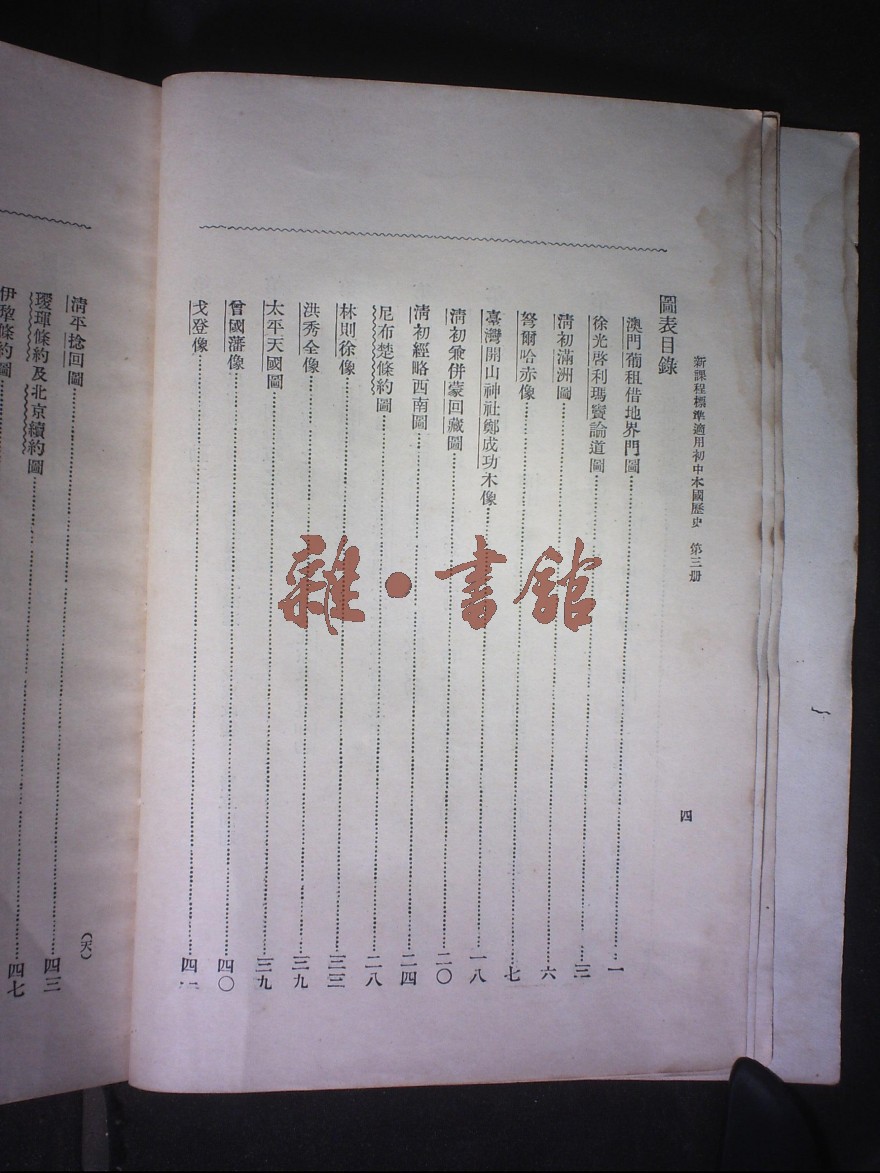 新課程標準適用初中本國歷史 第三册
四
圖表目錄
澳門葡租借地界門圖 一
徐光啓利瑪竇論道圖 三
清初滿洲圖 六
弩爾哈赤像 七
臺灣開山神社鄭成功木像 一八
清初兼併蒙回藏圖 二〇
清初經略西南圖 二四
尼布楚條約圖 二八
林則徐像 三三
洪秀全像 三九
太平天國圖 三九
曾國藩像 四〇
戈登像 四一
清平捻回圖 四三
璦琿條約及北京續約圖 四七
伊犂條約圖
(天)
雜·書館